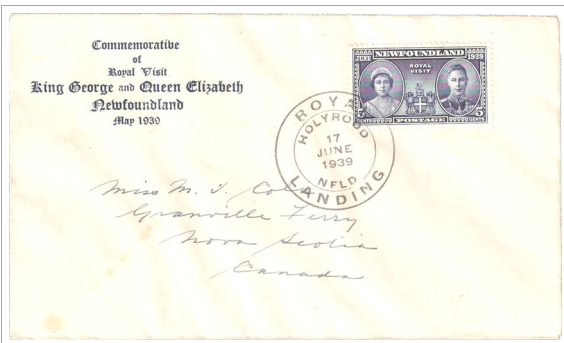 Commemorative
of
Royal Visit
King George and Queen Elizabeth
Newfoundland
May 1939
JUNE NEWFOUNDLAND 1939
ROYAL
VISIT
5 CENTS POSTAGE 5 CENTS
ROYAL
HOLYROOD
17
JUNE
1939
NFLD
LANDING
Miss M. I.
Granville Ferry
Nova Scotia
Canada